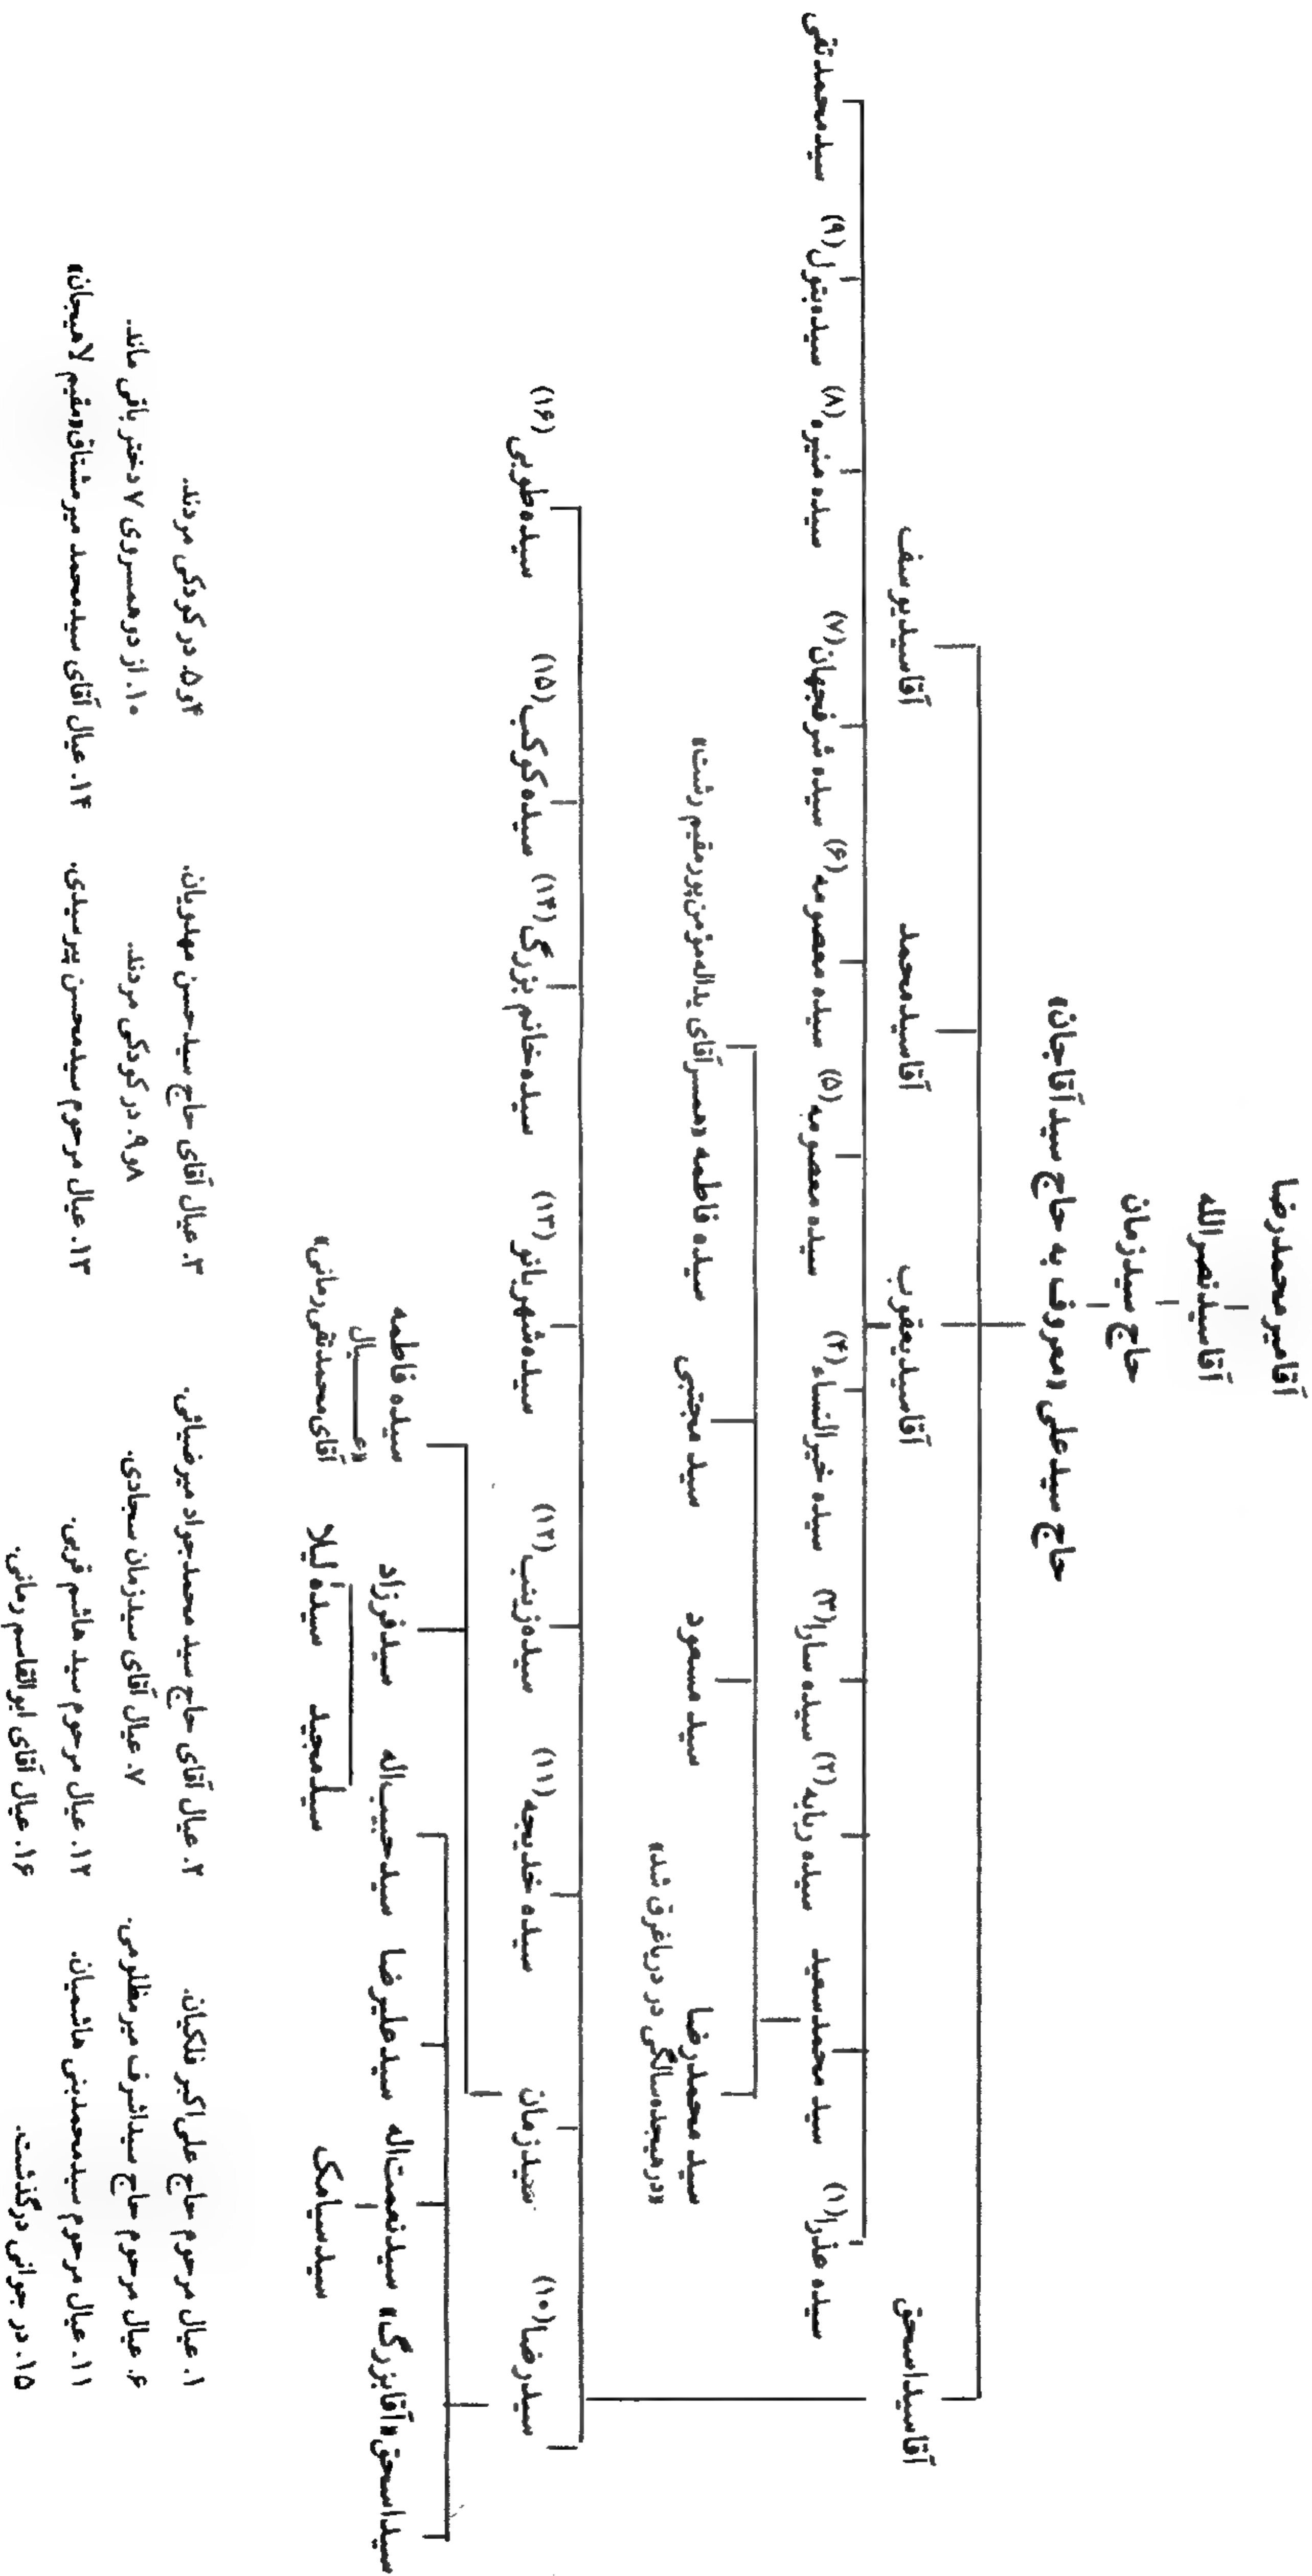 آقامیر محمدرضا
آقاسید نصرالله
حاج سید زمان
حاج سید علی «معروف به حاج سید آقاجان»
آقاسید اسحق آقاسید یعقوب آقاسید محمد آقاسید یوسف
سیده عذرا(۱) سید محمد سعید سیده ربابه(۲) سیده سارا(۳) سیده خیرالنساء(۴) سیده معصومه(۵) سیده معصومه(۶) سیده شرفجهان(۷) سیده منیره(۸) سیده بتول(۹) سید محمد تقی
سید محمد رضا سید مسعود سید مجتبی سیده فاطمه «همسر آقای یداله مؤمن پور مقیم رشت»
«در هیجده سالگی در دریا غرق شد»
سید رضا(۱۰) سید زمان سیده خدیجه(۱۱) سیده زینب(۱۲) سیده شهربانو(۱۳) سیده خانم بزرگ(۱۴) سیده کوکب(۱۵) سیده طوبی(۱۶)
سید اسحق «آقابزرگ» سید نعمت اله سید علیرضا سید حبیب اله سید فرزاد سیده فاطمه
«عیال
آقای محمد تقی رمانی»
سید سیامک سید مجید سیده لیلا
۱. عیال مرحوم حاج علی اکبر فلکیان. ۲. عیال آقای حاج سید محمد جواد میرضیائی. ۳. عیال آقای حاج سید حسن مهدویان. ۴و۵. در کودکی مردند.
۶. عیال مرحوم حاج سید اشرف میر مظلومی. ۷. عیال آقای سید زمان سجادی. ۸و۹. در کودکی مردند. ۱۰. از دو همسر وی ۷ دختر باقی ماند.
۱۱. عیال مرحوم سید محمد بنی هاشمیان. ۱۲. عیال مرحوم سید هاشم قربی. ۱۳. عیال مرحوم سید محسن پیر سیدی. ۱۴. عیال آقای سید محمد میر مشتاق «مقیم لاهیجان»
۱۵. در جوانی درگذشت. ۱۶. عیال آقای ابوالقاسم رمانی.